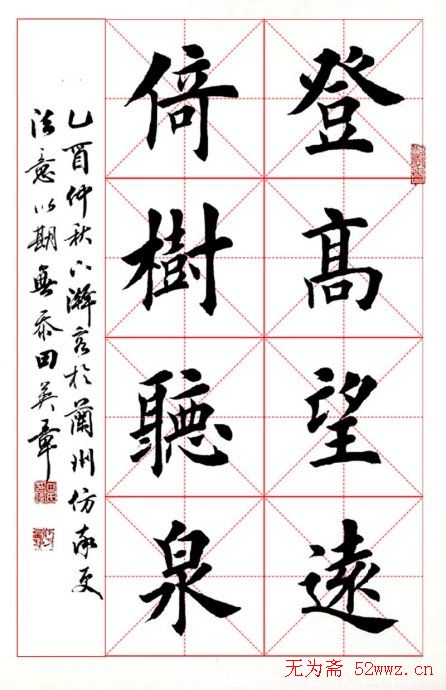 登高望遠
倚樹聽泉
乙酉仲秋以瀚客於蘭州仿歐更
法意以期無忝田英章
无为斋 52wwz.cn